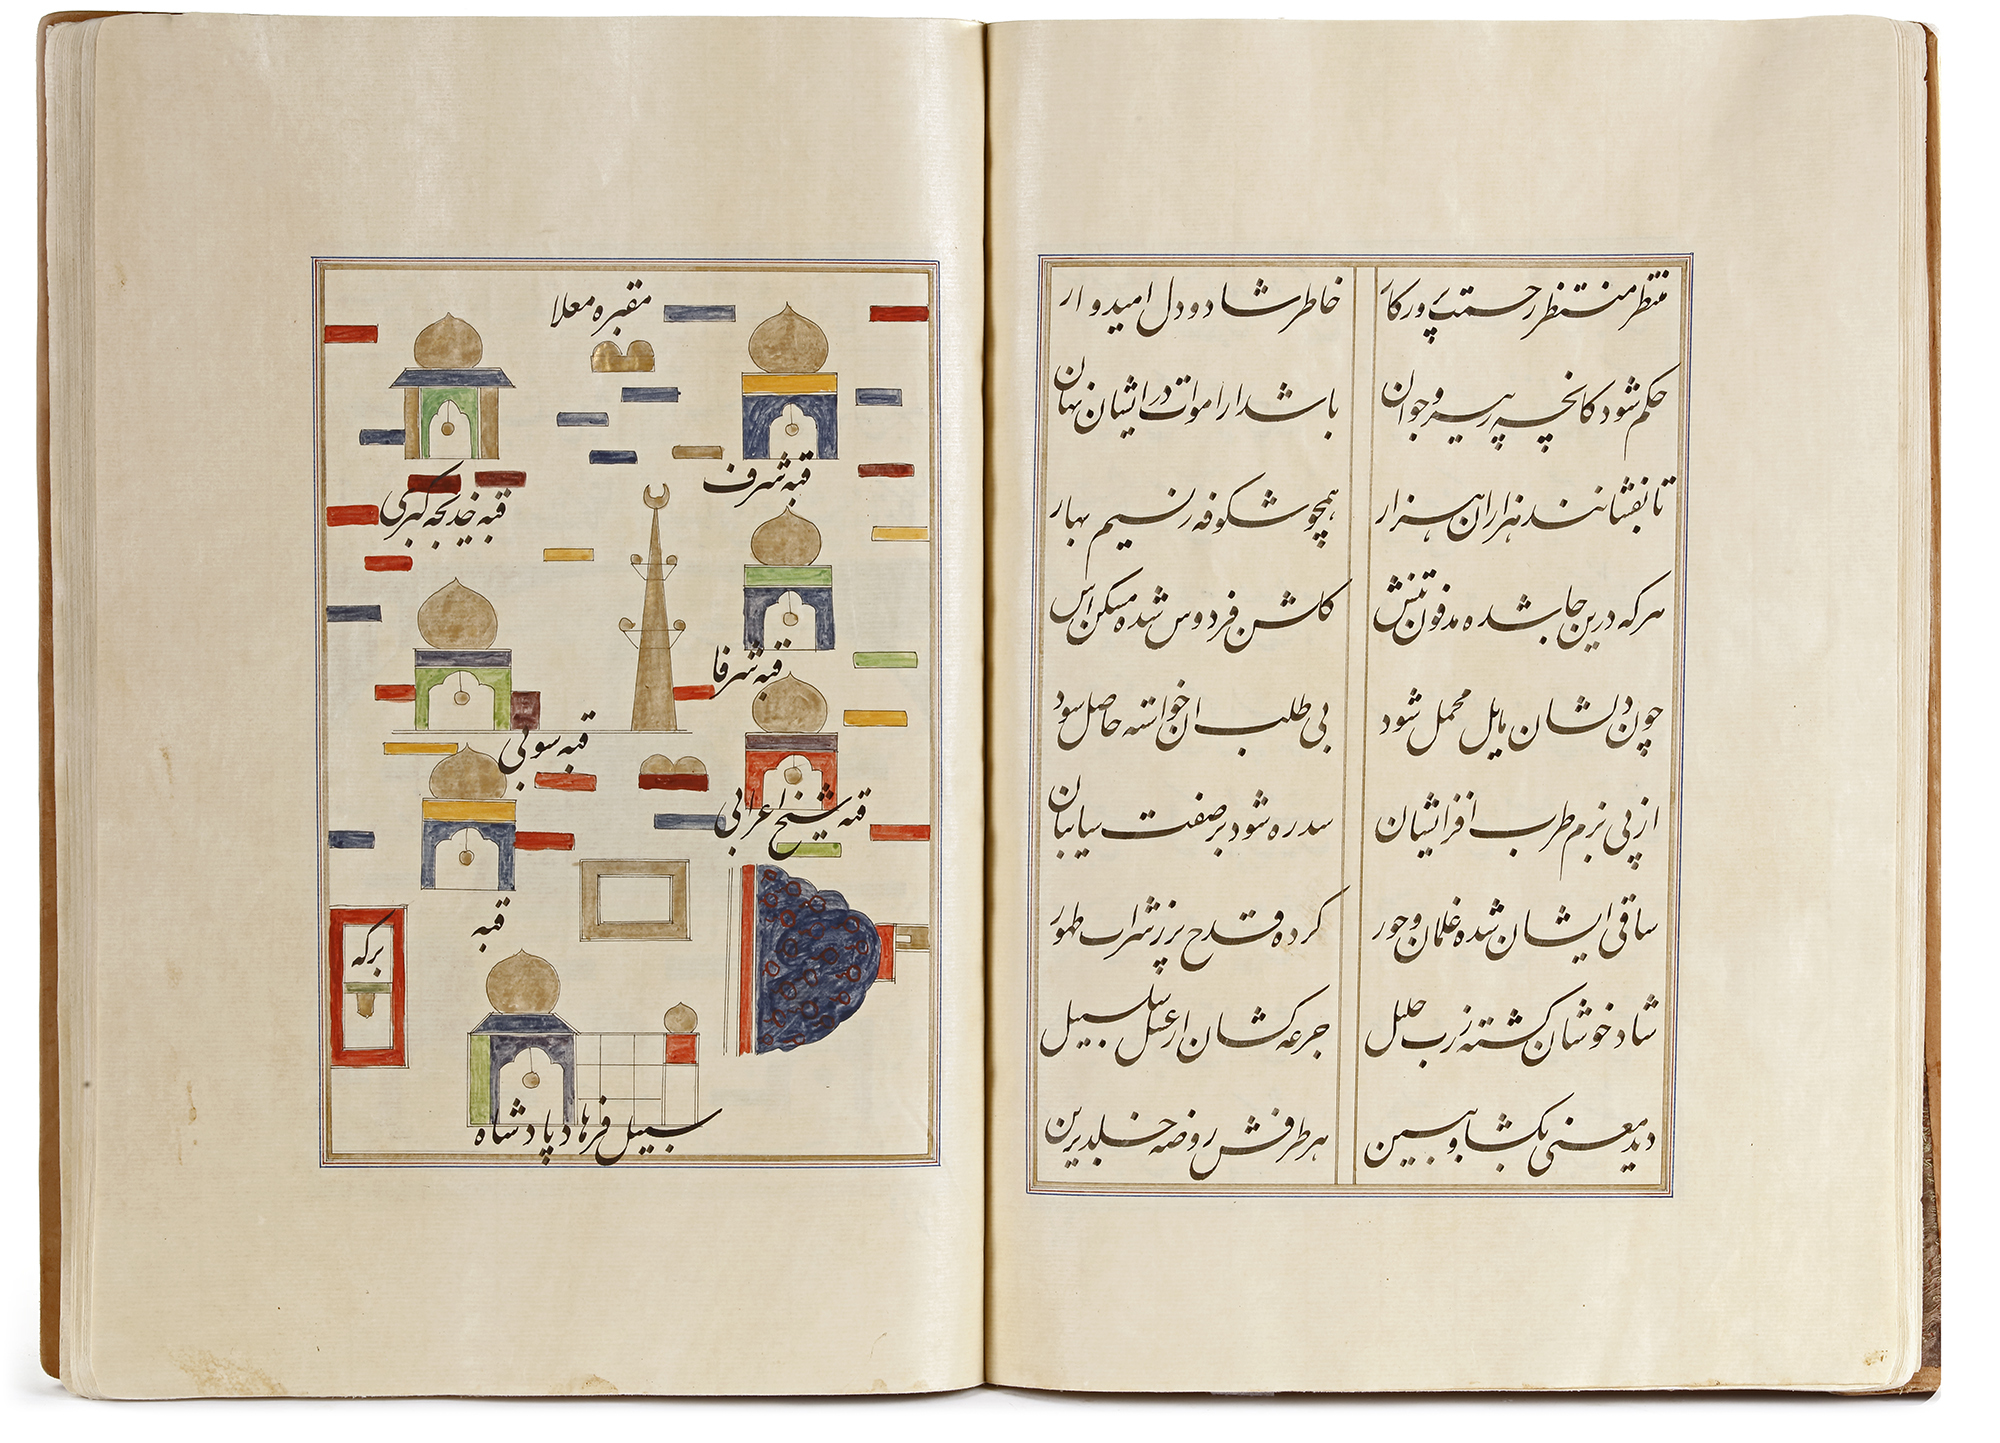 منتظر منتظر رحمت پرورکار خاطر شاد و دل امیدوار
حکم شود کانچه ز پیر و جوان باشد از اموات در ایشان نهان
تا بفشانند هزاران هزار همچو شکوفه ز نسیم بهار
هرکه درین جا شده مدفون تنش گلشن فردوس شده مسکنش
چون دلشان مایل محمل شود بی طلب آن خواسته حاصل شود
از پی بزم طرب افزایشان سدره شود بر صفت سایبان
ساقی ایشان شده غلمان و حور کرده قدح پر ز شراب طهور
شاد خوشان گشته ز رب جلیل جرعه کشان از عسل سلسبیل
دیده معنی بگشا و ببین هر طرفش روضه خلد برین
مقبره معلا
قبه شرف
قبه خدیجه کبری
قبه شرفا
قبه سولی
قبه شیخ اعرابی
قبه
برکه
سبیل فرهاد پادشاه